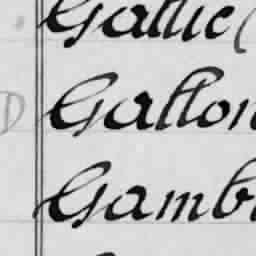 Gallic (
D Gallon
Gamb